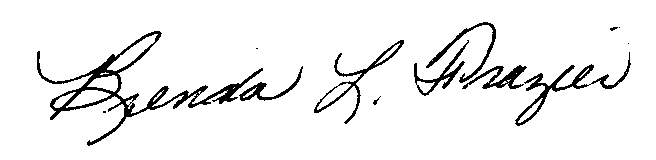 Brenda L. Frazier